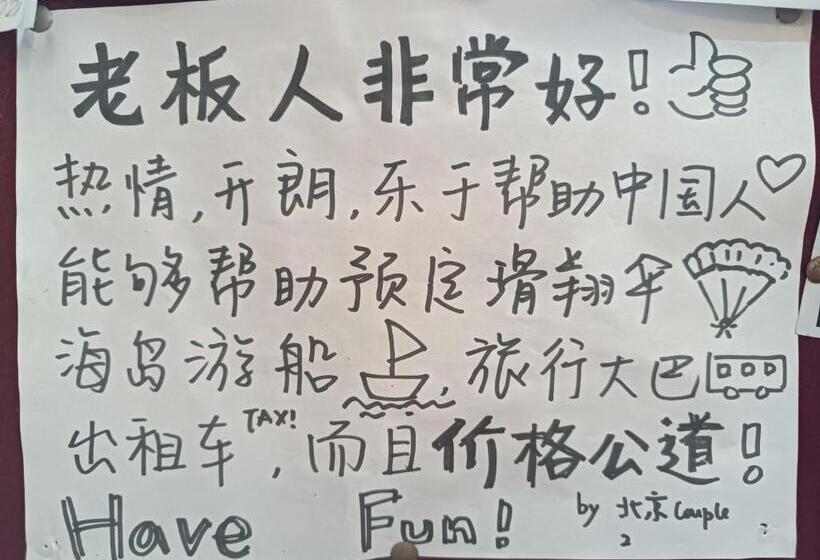 老板人非常好！
热情，开朗，乐于帮助中国人
能够帮助预定滑翔伞
海岛游船，旅行大巴
出租车TAXI，而且价格公道！
Have Fun! by 北京Couple
2